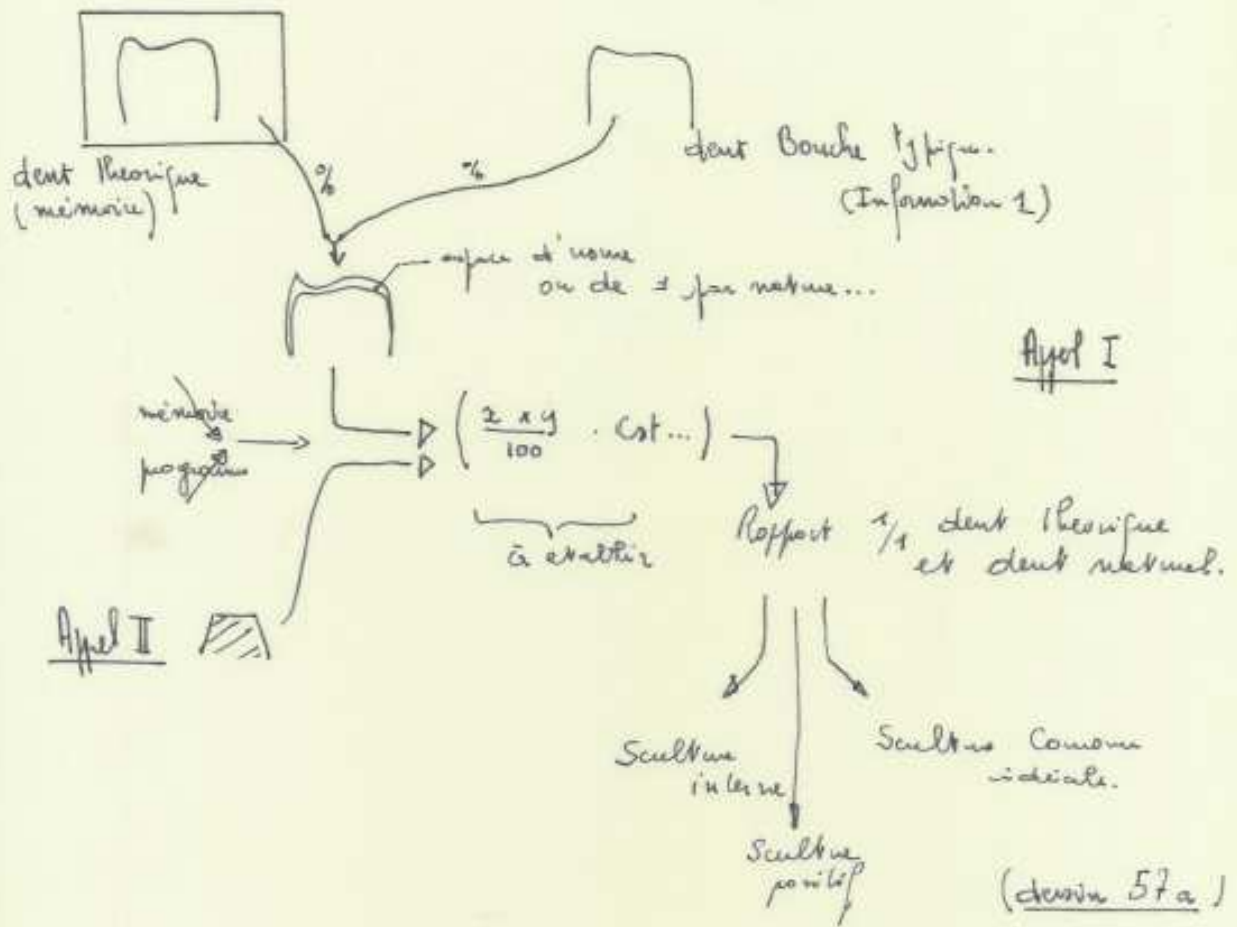 dent theorique
(mémoire)
%
%
dent Bouche typique.
(Information 1)
espace d'usure
ou de ≠ par nature...
Appel I
mémoire
programme
( x x y / 100 . Cst... )
à etablir
Rapport 1/1 dent theorique
et dent naturel.
Appel II
Sculture
interne
Sculture
positif
Sculture Couronne
idéale.
(dessin 57a)